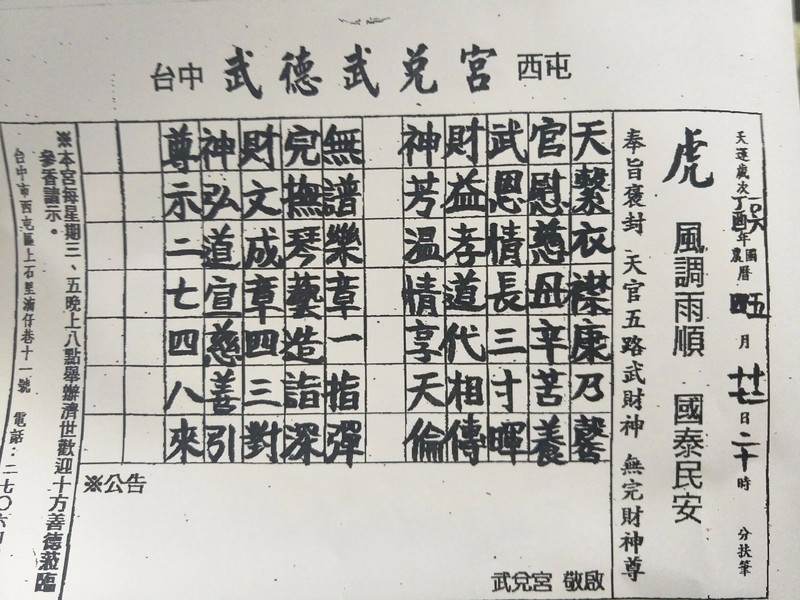 台中 武德武兌宮 西屯
天運歲次丁酉年 月 日二十時 分扶筆
虎 風調雨順 國泰民安
奉旨褒封 天官五路武財神 無完財神尊
天繫衣襟康乃馨
官慰慈母辛苦養
武恩情長三寸暉
財益孝道代相傳
神芳溫情享天倫
無譜樂章一指彈
完撫琴藝造詣深
財文成章四三對
神弘道宣慈善引
尊示二七四八來
※公告
武兌宮 敬啟
※本宮每星期三、五晚上八點舉辦濟世歡迎十方善德蒞臨
參香請示。
台中市西屯區上石里湳仔巷十一號 電話：二七〇六